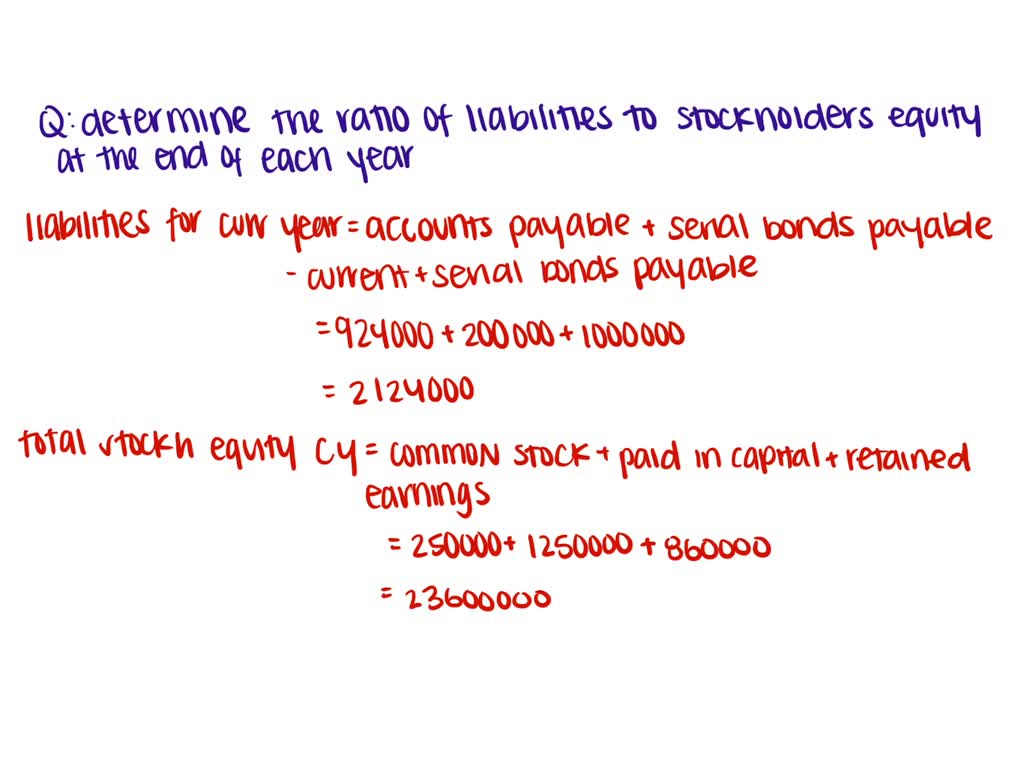 Q: determine the ratio of liabilities to stockholders equity
at the end of each year
liabilities for curr year = accounts payable + serial bonds payable
- current + serial bonds payable
= 924000 + 200000 + 1000000
= 2124000
total stockh equity CY = common stock + paid in capital + retained
earnings
= 250000 + 1250000 + 860000
= 23600000